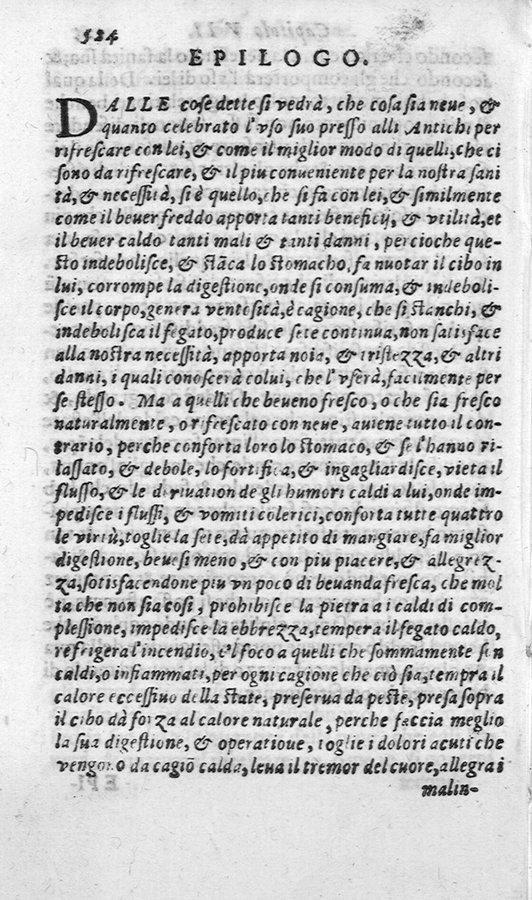 524
EPILOGO.
DALLE cose dette si vedrà, che cosa sia neue, &
quanto celebrato l'vso suo presso alli Antichi per
rifrescare con lei, & come il miglior modo di quelli, che ci
sono da rifrescare, & il piu conueniente per la nostra sani
tà, & necessità, si è quello, che si fa con lei, & similmente
come il beuer freddo apporta tanti beneficij, & vtilità, et
il beuer caldo tanti mali & tanti danni, percioche que-
sto indebolisce, & stāca lo stomacho, fa nuotar il cibo in
lui, corrompe la digestione, onde si consuma, & indeboli-
sce il corpo, genera ventosità, è cagione, che si stanchi, &
indebolisca il fegato, produce sete continua, non satisface
alla nostra necessità, apporta noia, & tristezza, & altri
danni, i quali conoscerà colui, che l'vserà, facilmente per
se stesso. Ma a quelli che beueno fresco, o che sia fresco
naturalmente, o rifrescato con neue, auiene tutto il con-
trario, perche conforta loro lo stomaco, & se l'hanno ri-
lassato, & debole, lo fortifica, & ingagliardisce, vieta il
flusso, & le deriuation de gli humori caldi a lui, onde im-
pedisce i flussi, & vomiti colerici, conforta tutte quattro
le virtù, toglie la sete, dà appetito di mangiare, fa miglior
digestione, beuesi meno, & con piu piacere, & allegrez-
za, sotisfacendone piu vn poco di beuanda fresca, che mol
ta che non sia così, prohibisce la pietra a i caldi di com-
plessione, impedisce la ebbrezza, tempera il fegato caldo,
refrigera l'incendio, e'l foco a quelli che sommamente son
caldi, o infiammati, per ogni cagione che ciò sia, tempra il
calore eccessiuo della State, preserua da peste, presa sopra
il cibo dà forza al calore naturale, perche faccia meglio
la sua digestione, & operatioue, toglie i dolori acuti che
vengono da cagiō calda, leua il tremor del cuore, allegra i
malin-